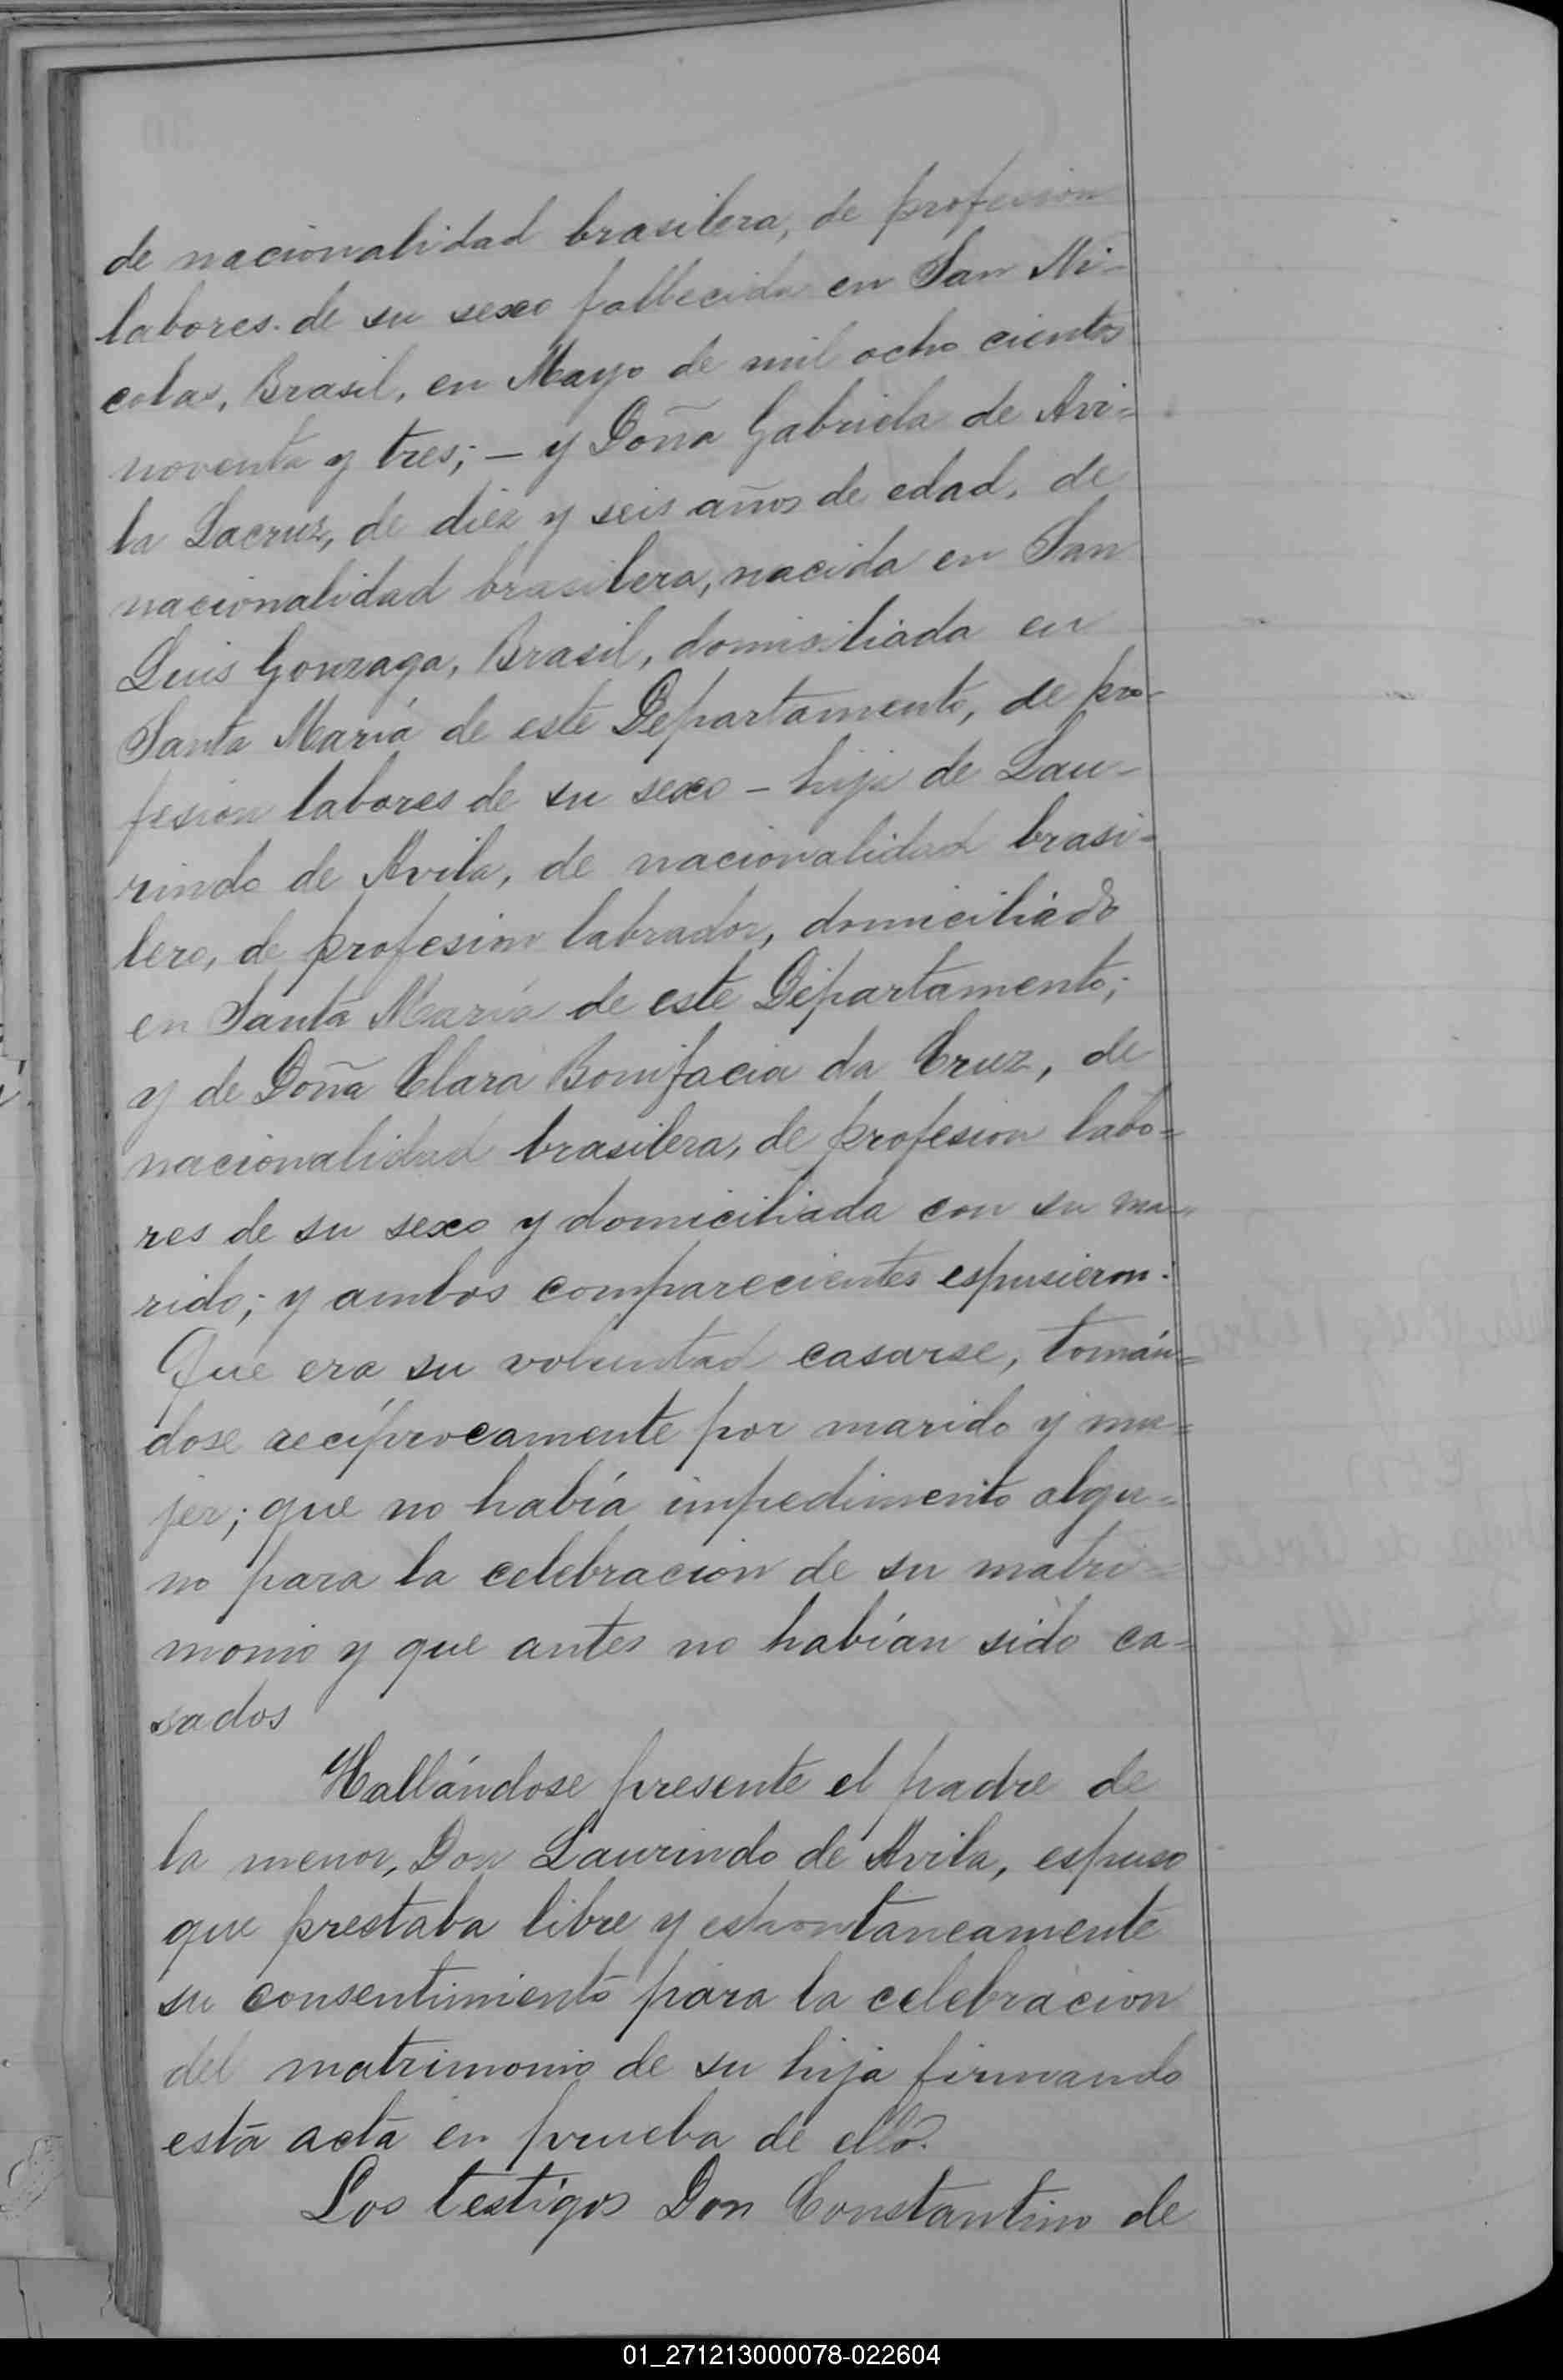 de nacionalidad brasilera, de profesion
labores de su sexo fallecida en San Ni-
colas, Brasil, en Mayo de mil ocho cientos
noventa y tres; – y Doña Gabriela de Avi=
la Lacruz, de diez y seis años de edad, de
nacionalidad brasilera, nacida en San
Luis Gonzaga, Brasil, domisiliada en
Santa María de este Departamento, de pro-
fesion labores de su sexo – hija de Lau-
rindo de Avila, de nacionalidad brasi-
lero, de profesion labrador, domiciliado
en Santa María de este Departamento;
y de Doña Clara Bonifacia da Cruz, de
nacionalidad brasilera, de profesion labo=
res de su sexo y domiciliada con su ma-
rido; y ambos comparecientes espusieron:
Que era su voluntad casarse, tomán=
dose recíprocamente por marido y mu=
jer; que no había impedimento algu=
no para la celebracion de su matri-
monio y que antes no habían sido ca-
sados
Hallándose presente el padre de
la menor, Don Laurindo de Avila, espuso
que prestaba libre y espontaneamente
su consentimiento para la celebracion
del matrimonio de su hija firmando
esta acta en prueba de ello.
Los testigos Don Constantino de
01_271213000078-022604